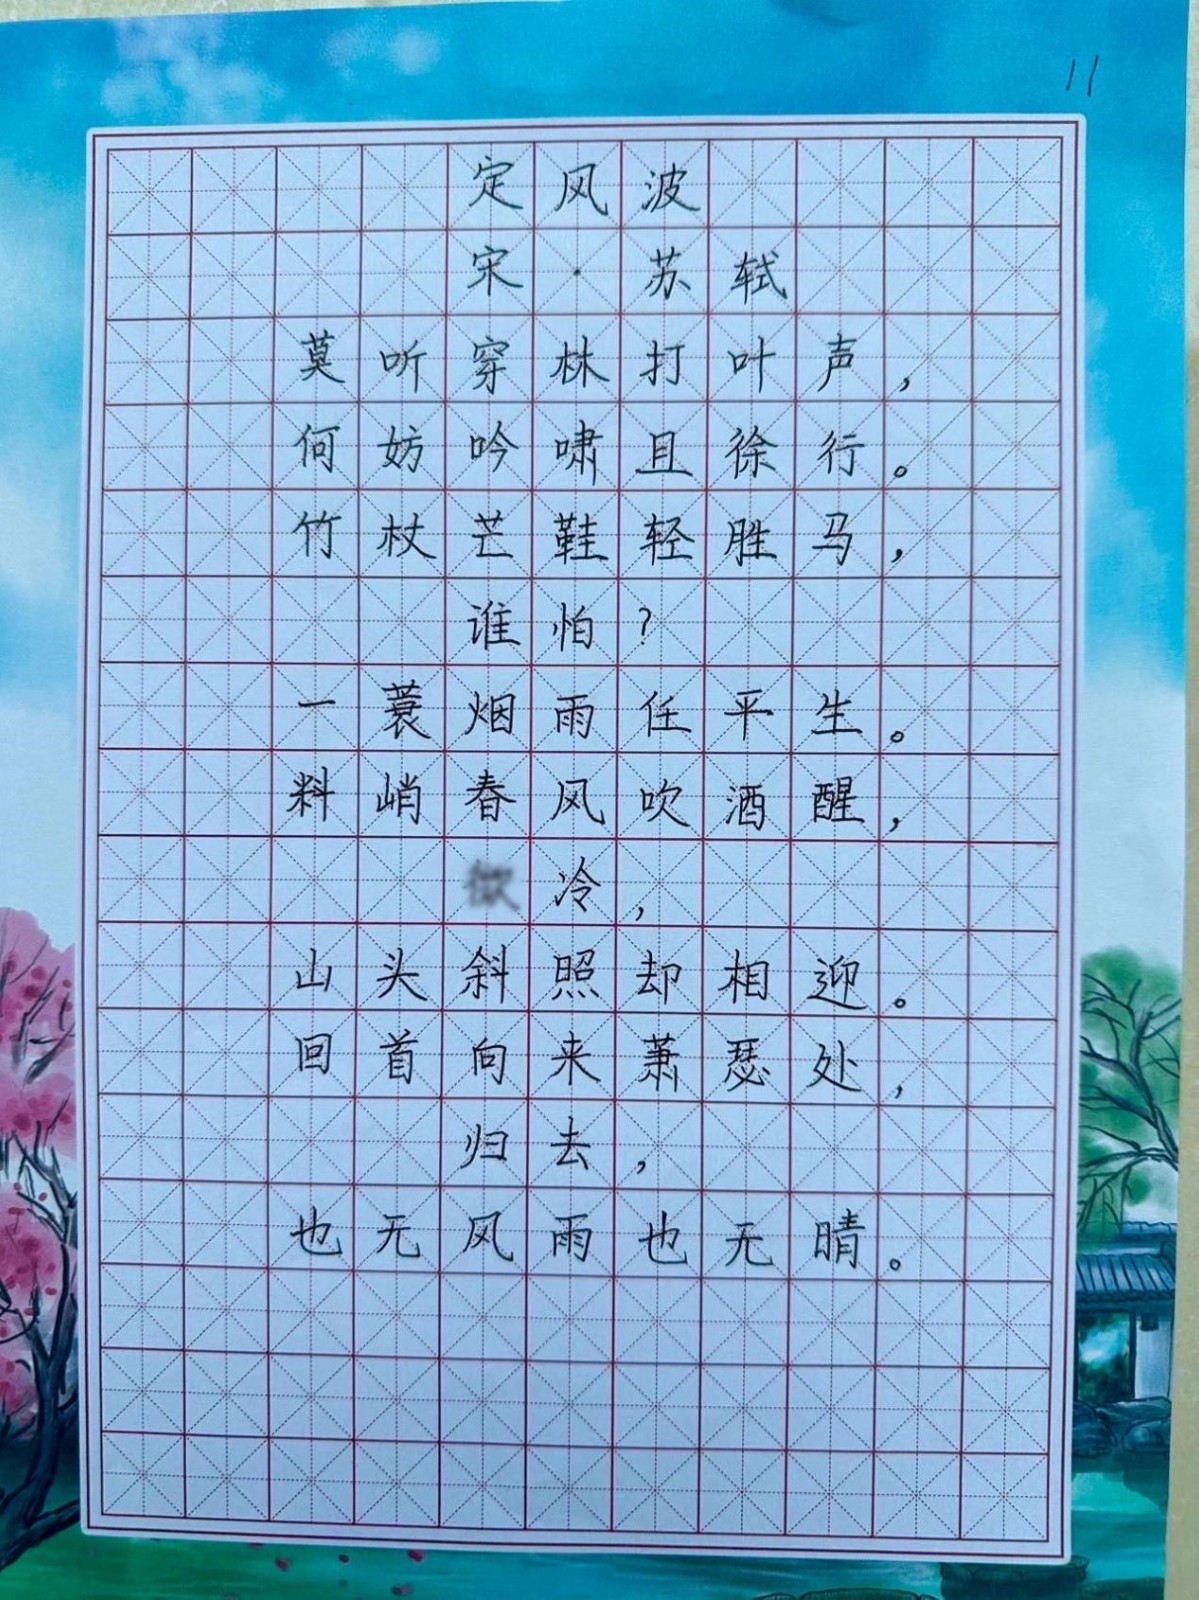 11
定风波
宋·苏轼
莫听穿林打叶声，
何妨吟啸且徐行。
竹杖芒鞋轻胜马，
谁怕？
一蓑烟雨任平生。
料峭春风吹酒醒，
冷，
山头斜照却相迎。
回首向来萧瑟处，
归去，
也无风雨也无晴。